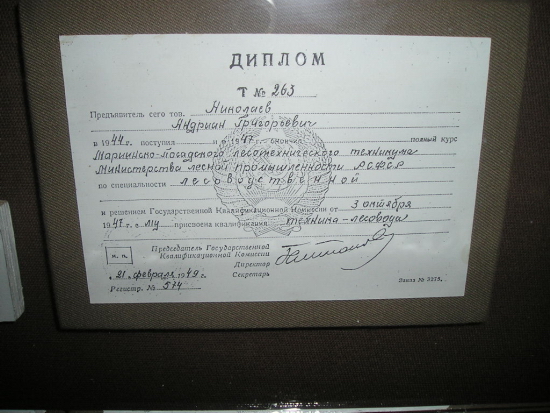 ДИПЛОМ
Т № 263
Предъявитель сего тов. Николаев
Андриан Григорьевич
в 1944 г. поступил и в 1947 г. окончил полный курс
Мариинско-посадского лесотехнического техникума
Министерства лесной промышленности РСФСР
по специальности лесоводственной
и решением Государственной Квалификационной Комиссии от 3 октября
1947 г. ему присвоена квалификация техника-лесовода
Председатель Государственной
Квалификационной Комиссии
М. П.
Директор
21 февраля 1949 г. Секретарь
Регистр. № 574
Заказ №